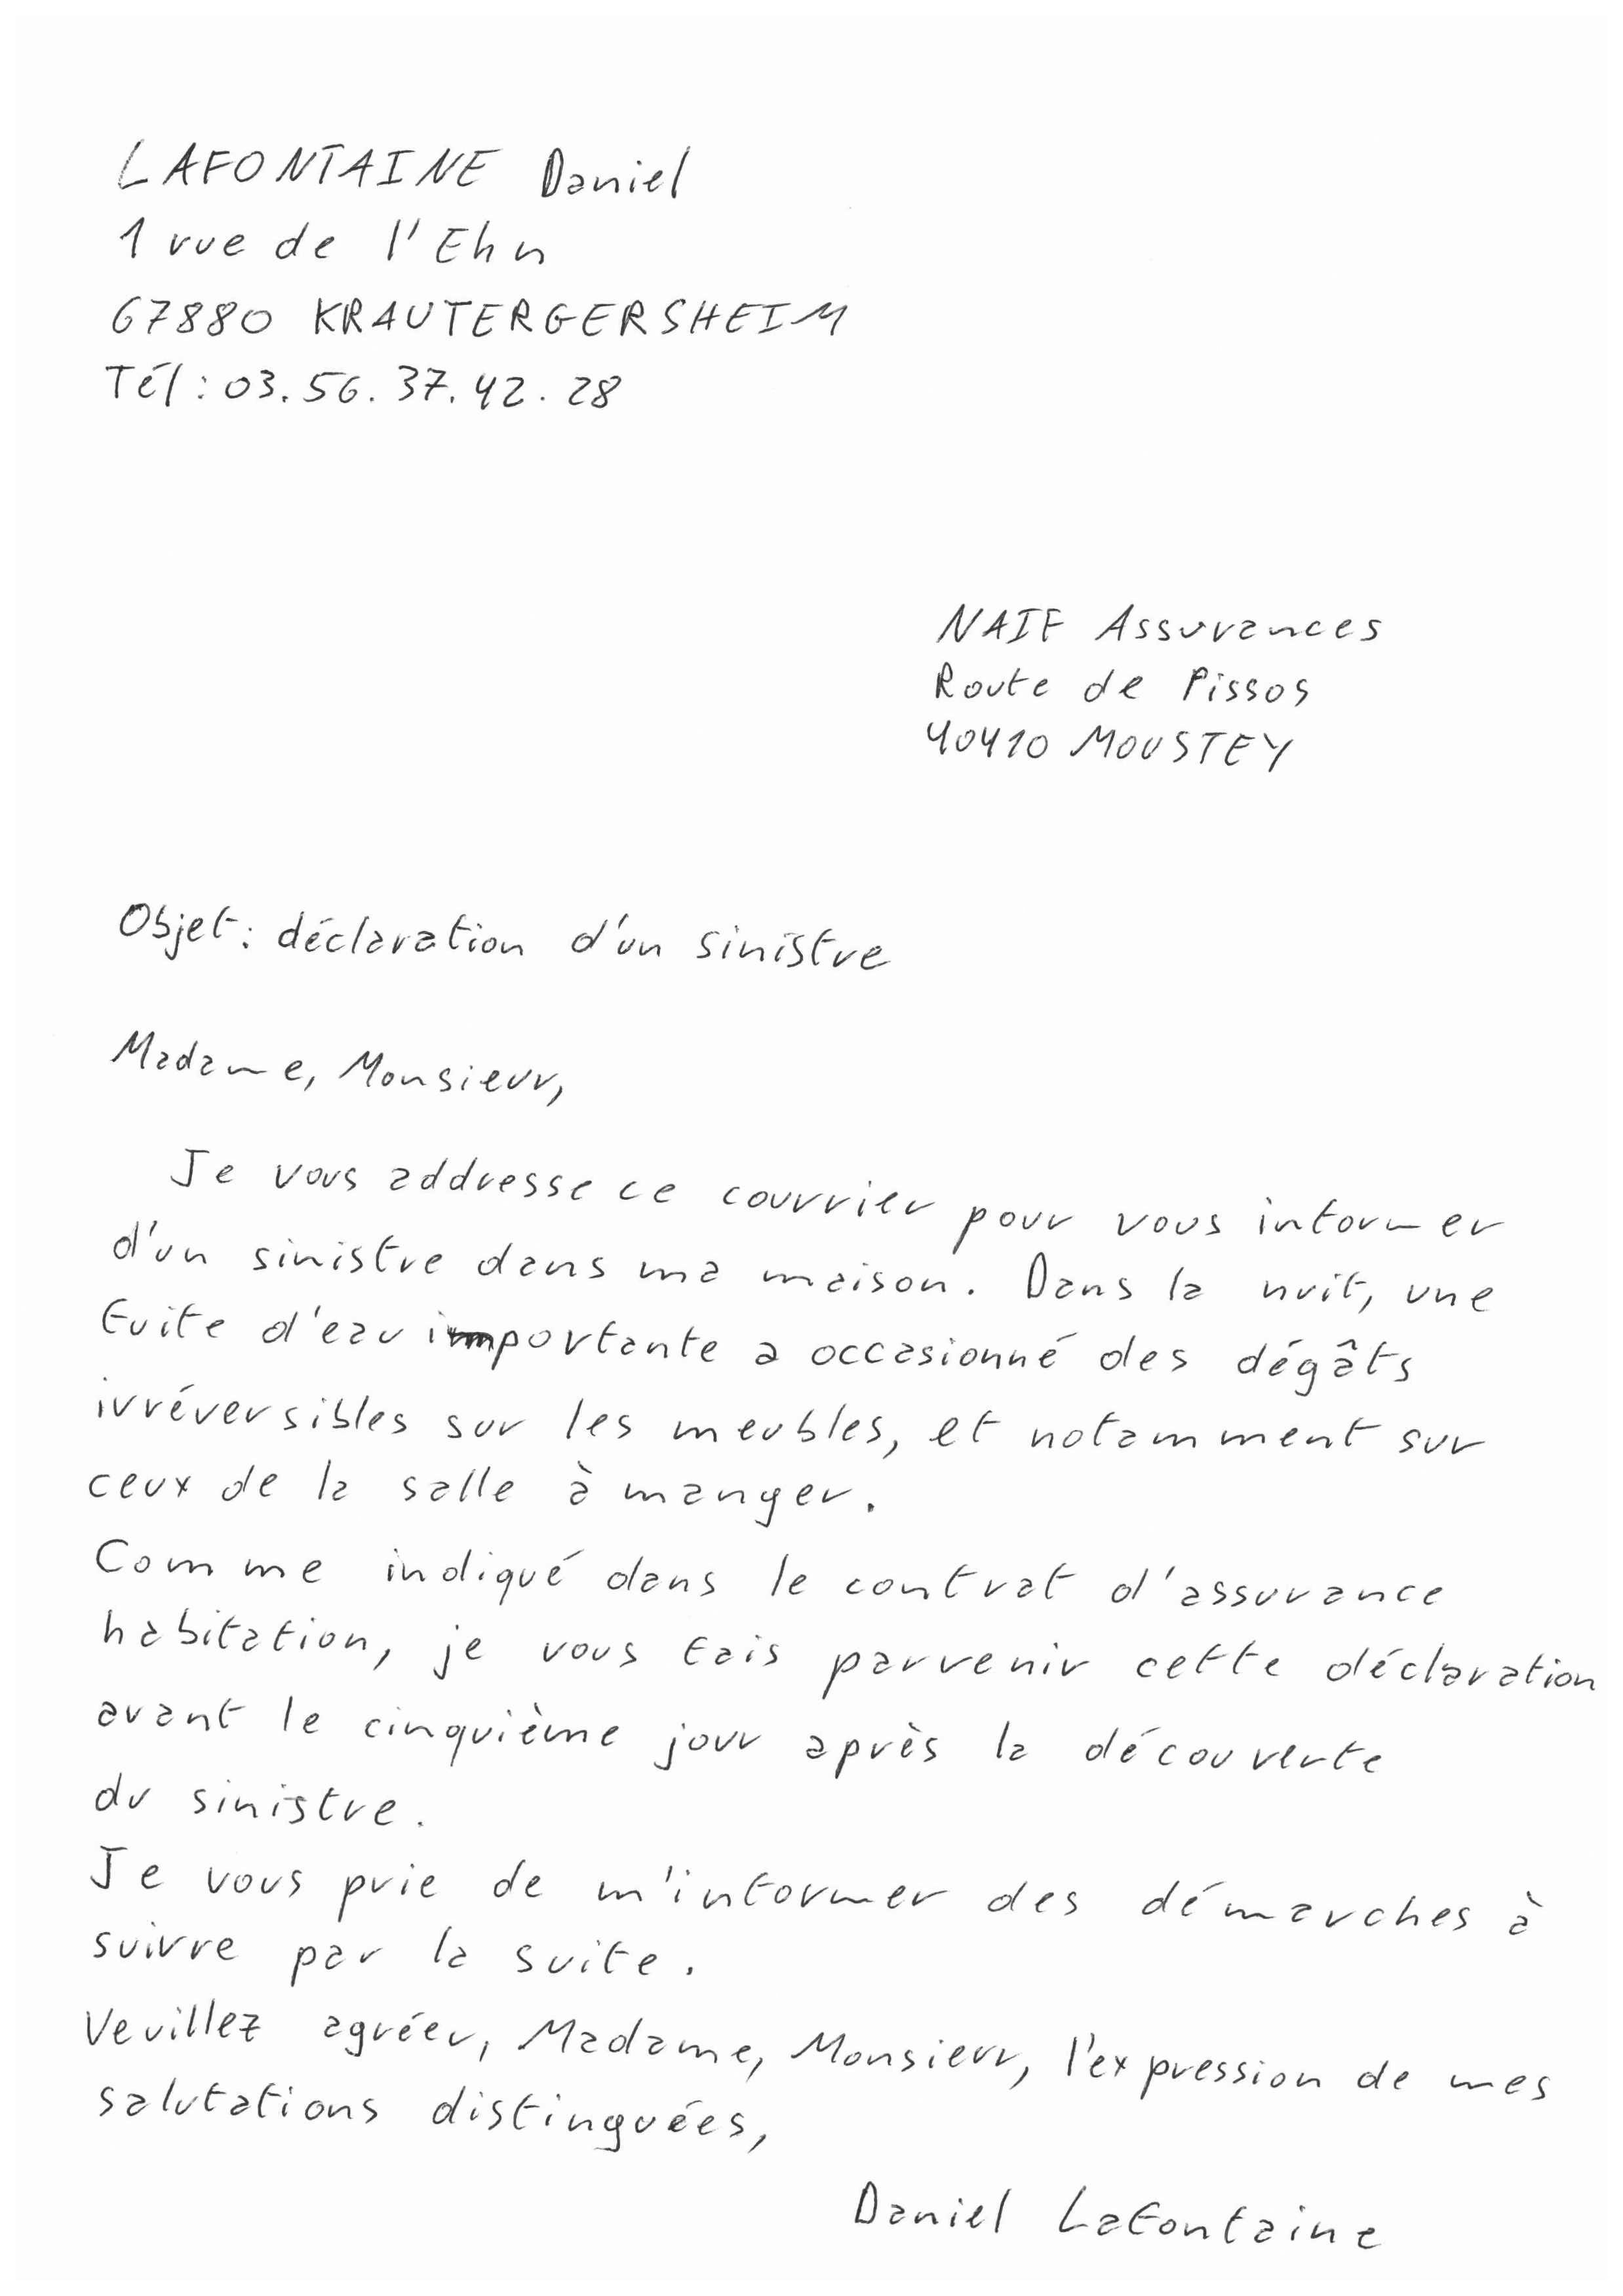 LAFONTAINE Daniel
1 rue de l'Ehn
67880 KRAUTERGERSHEIM
Tél : 03.56.37.42.28
NAIF Assurances
Route de Pissos
40410 MOUSTEY
Objet : déclaration d'un sinistre
Madame, Monsieur,
Je vous addresse ce courrier pour vous informer
d'un sinistre dans ma maison. Dans la nuit, une
fuite d'eau importante a occasionné des dégâts
irréversibles sur les meubles, et notamment sur
ceux de la salle à manger.
Comme indiqué dans le contrat d'assurance
habitation, je vous fais parvenir cette déclaration
avant le cinquième jour après la découverte
du sinistre.
Je vous prie de m'informer des démarches à
suivre par la suite.
Veuillez agréer, Madame, Monsieur, l'expression de mes
salutations distinguées,
Daniel Lafontaine